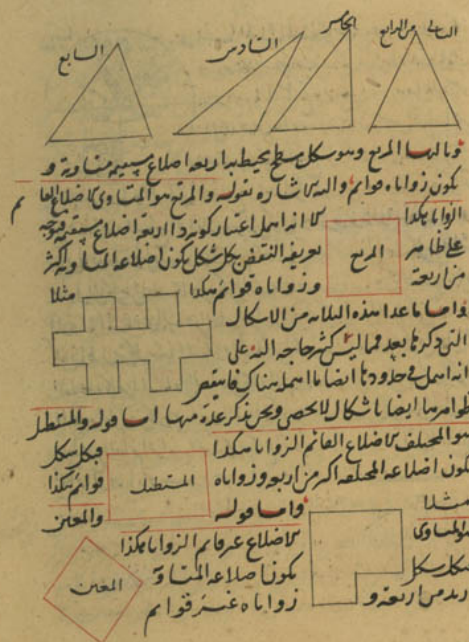 السابع
السادس
الخامس
الرابع
وثالثها المربع وهو شكل مسطح يحيط به اربعة اضلاع مستقيمة متساوية و
يكون زواياه قوائم والمه الاشارة بقوله والمربع هو المتساوى الاضلاع القا ىم
الزوايا هكذا
لا انه اهمل اعتبار كونه ذا اربعة اضلاع مستقيمة
على ظاهر
المربع
تعريفه النقض بكل شكل يكون اضلاعه المتساوية اكثر
من اربعة
وزواياه قوائم هكذا
مثلا
واما ما عدا هذه الثلاثة من الاشكال
التى ذكرها بعد فمما ليس كثير حاجة اليه على
انه اهمل فى حدودها ايضا ما اهمل هناك فانتقض
ظواهرها ايضا باشكال لا تحصى ونحن نذكر عدة منها اما قوله والمستطيل
هو المختلف الاضلاع القائم الزوايا هكذا
فبكل شكل
يكون اضلاعه المختلفة اكثر من اربعة وزواياه
المستطيل
قوائم هكذا
مثلا
واما قوله
والمعين
هو المتساوى
الاضلاع غير قائم الزوايا هكذا
فبكل شكل
يكون اضلاعه المتساوية
المعين
ازيد من اربعة و
زواياه غير قوائم